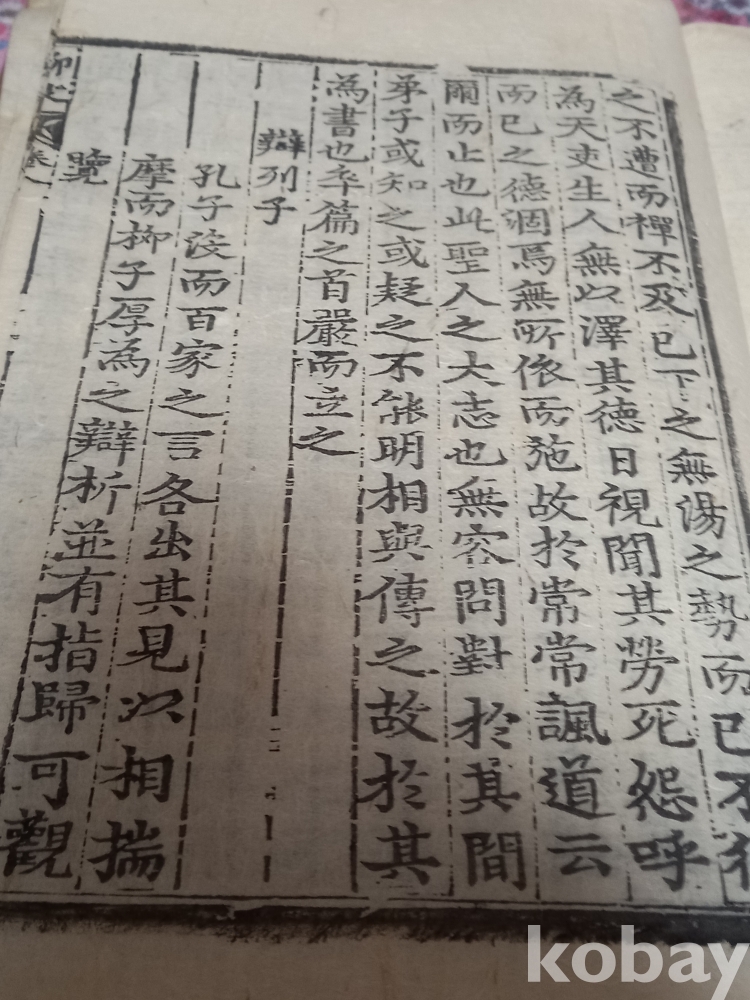 之不遭而禪不及已下之無湯之勢而已不
為天吏生人無以澤其德日視聞其勞死怨呼
而已之德涸焉無所依而施故於常常諷道云
爾而止也此聖人之大志也無容問對於其間
弟子或知之或疑之不能明相與傳之故於其
為書也卒篇之首嚴而立之
辯列子
孔子後而百家之言各出其見以相揣
摩而柳子厚為之辯析並有指歸可觀
覽
柳
kobay